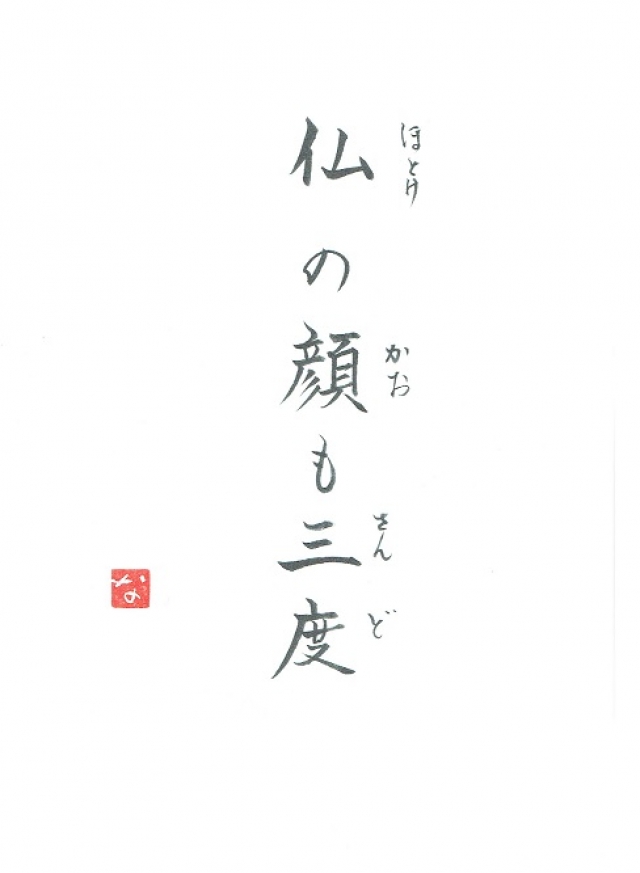 仏の顔も三度
ほとけ かお さんど
な